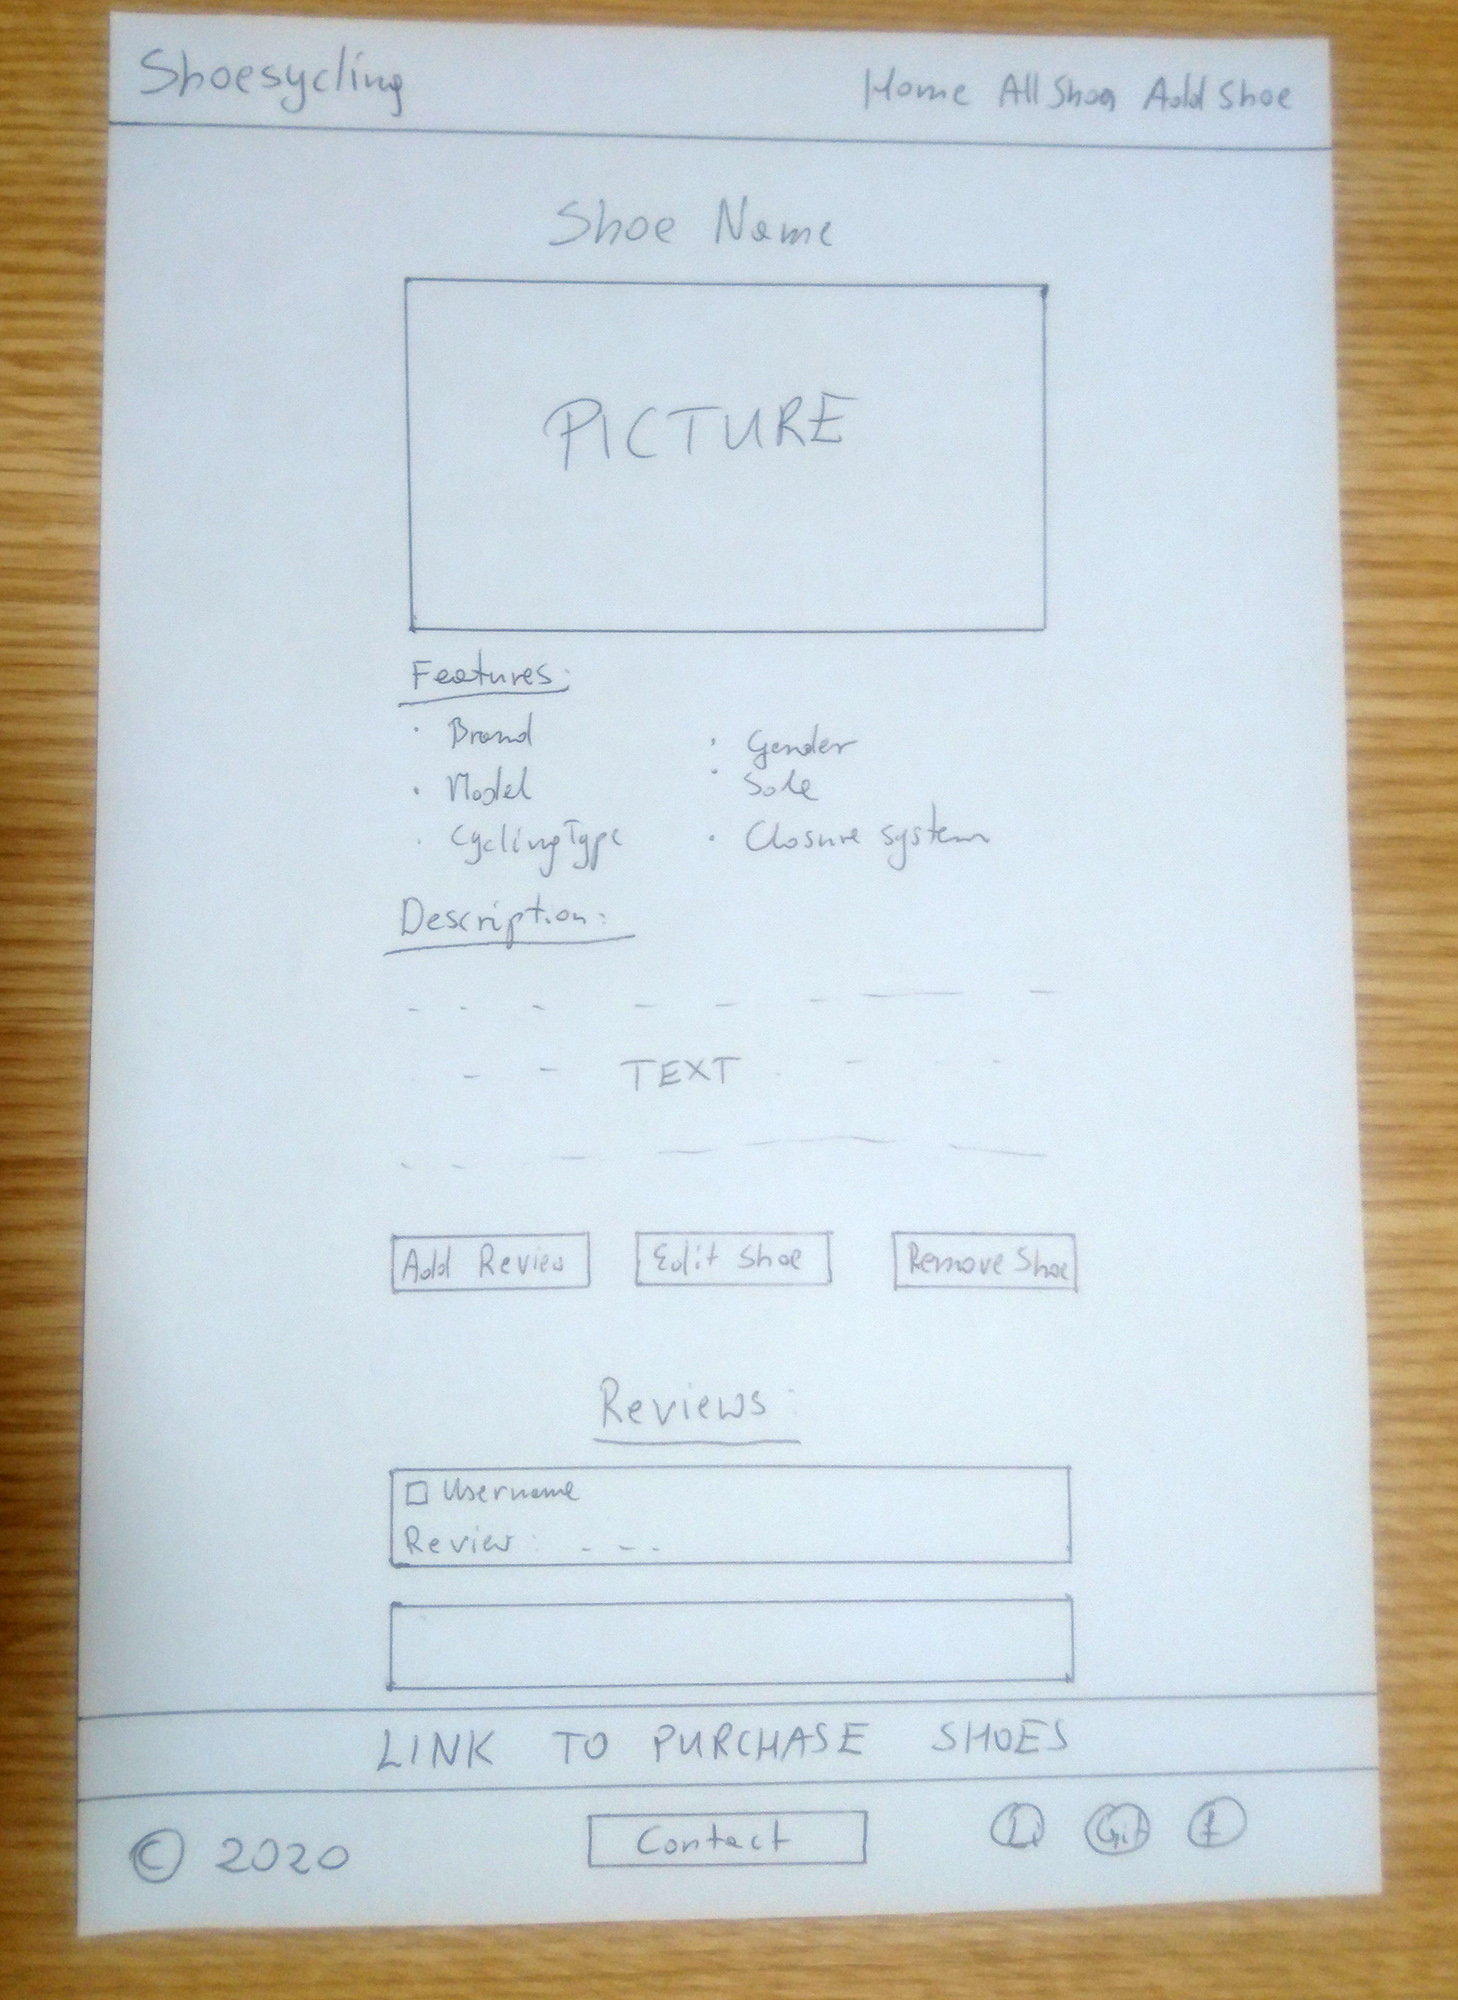 Shoesycling
Home All Shoes Add Shoe
Shoe Name
PICTURE
Features:
· Brand
· Model
· Cycling Type
· Gender
· Sole
· Closure system
Description:
TEXT
Add Review
Edit Shoe
Remove Shoe
Reviews:
Username
Review: - - -
LINK TO PURCHASE SHOES
© 2020
Contact
Git